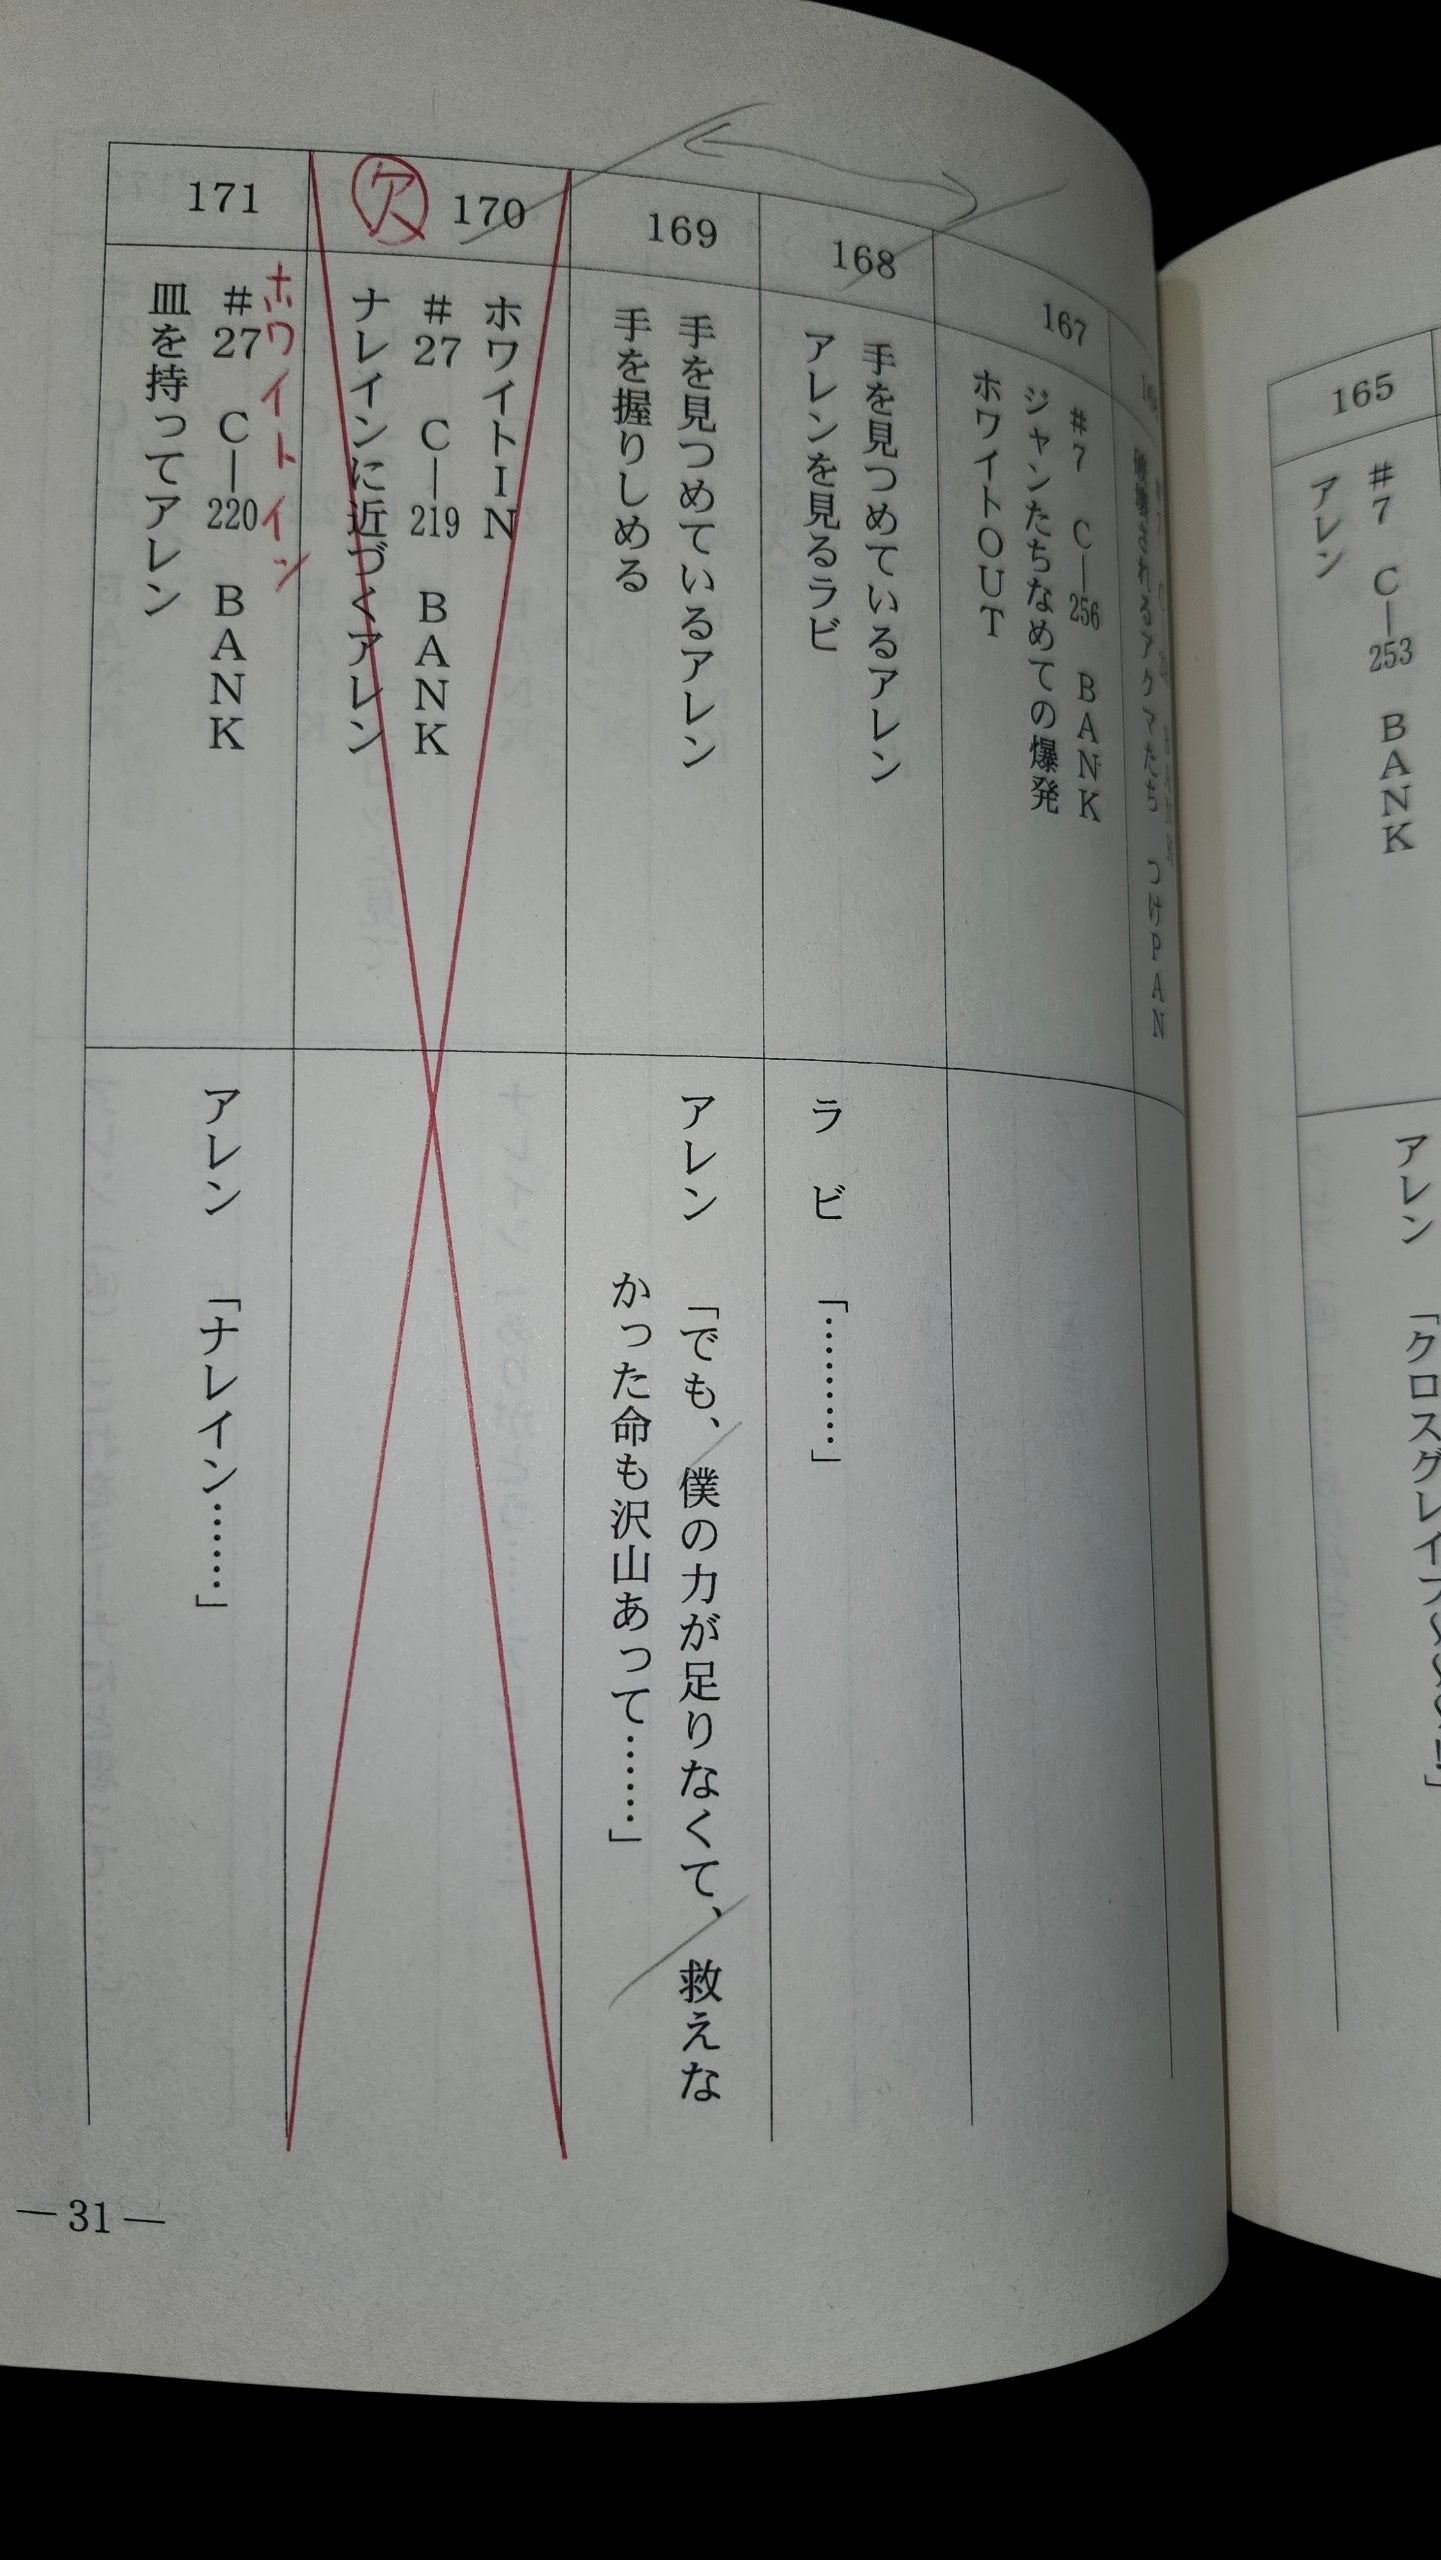 165
#7 C—253 BANK
アレン
アレン
「クロスグレイブ
つけPAN
167
#7 C—256 BANK
ジャンたちなめての爆発
ホワイトOUT
168
手を見つめているアレン
アレンを見るラビ
ラビ 「………」
169
手を見つめているアレン
手を握りしめる
アレン 「でも、僕の力が足りなくて、救えな
かった命も沢山あって……」
170
欠
ホワイトIN
#27 C—219 BANK
ナレインに近づくアレン
171
ホワイトイン
#27 C—220 BANK
皿を持ってアレン
アレン 「ナレイン……」
—31—